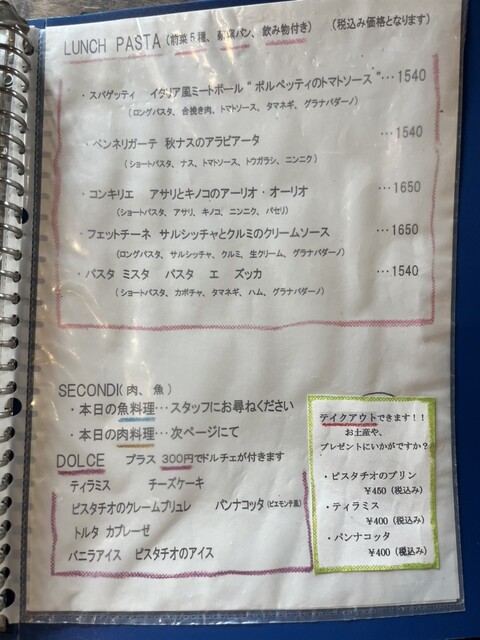 LUNCH PASTA (前菜5種、自家製パン、飲み物付き) (税込み価格となります)
・スパゲッティ イタリア風ミートボール"ポルペッティのトマトソース"…1540
(ロングパスタ、合挽き肉、トマトソース、タマネギ、グラナパダーノ)
・ペンネリガーテ 秋ナスのアラビアータ …1540
(ショートパスタ、ナス、トマトソース、トウガラシ、ニンニク)
・コンキリエ アサリとキノコのアーリオ・オーリオ …1650
(ショートパスタ、アサリ、キノコ、ニンニク、パセリ)
・フェットチーネ サルシッチャとクルミのクリームソース …1650
(ロングパスタ、サルシッチャ、クルミ、生クリーム、グラナパダーノ)
・パスタ ミスタ パスタ エ ズッカ …1540
(ショートパスタ、カボチャ、タマネギ、ハム、グラナパダーノ)
SECONDI(肉、魚)
・本日の魚料理…スタッフにお尋ねください
・本日の肉料理…次ページにて
DOLCE プラス 300円でドルチェが付きます
ティラミス チーズケーキ
ピスタチオのクレームブリュレ パンナコッタ(ピエモンテ風)
トルタ カプレーゼ
バニラアイス ピスタチオのアイス
テイクアウトできます!!
お土産や、
プレゼントにいかがですか?
・ピスタチオのプリン
¥450(税込み)
・ティラミス
¥400(税込み)
・パンナコッタ
¥400(税込み)